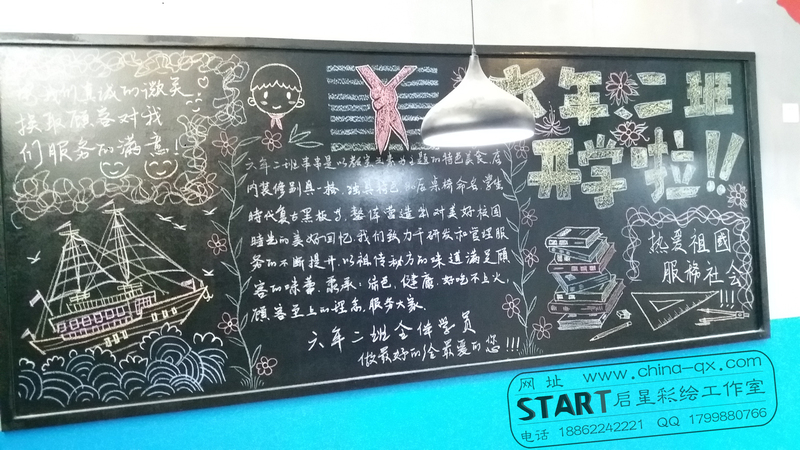 们真诚的微笑
换取顾客对我
们服务的满意!
六年二班
开学啦!!
六年二班串串是以教室元素为主题的特色美食店
内装修别具一格,独具特色 以店桌椅命名 学生
时代复古黑板了,整体营造出对美好校园
时光的美好回忆.我们致力于研发和管理服
务的不断提升.以祖传秘方的味道满足顾
客的味蕾.秉承:绿色,健康,好吃不上火,
顾客至上的理念,服务大家.
六年二班全体学员
做最好的给最爱的您!!!
热爱祖國
服務社会
!!!
网址 www.china-qx.com
START启星彩绘工作室
电话 18862242221 QQ 1799880766